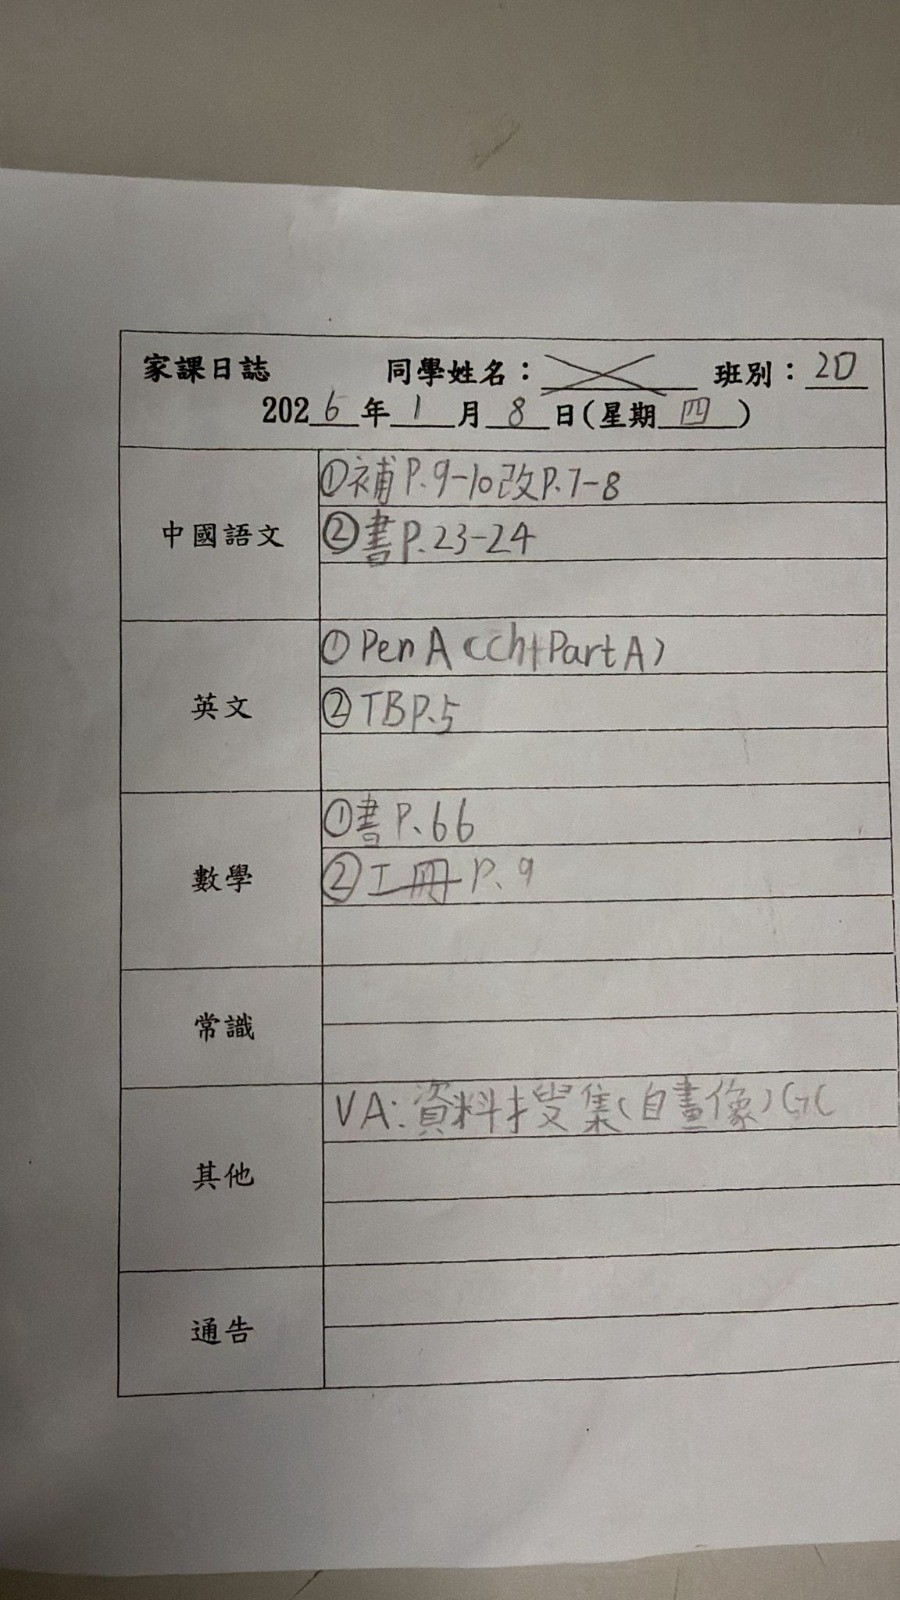 家課日誌 同學姓名： 班別：2D
2026年1月8日(星期四)
中國語文
①補P.9-10改P.7-8
②書P.23-24
英文
①Pen A (Ch1 Part A)
②TBP.5
數學
①書P.66
②工冊P.9
常識
其他
VA:資料搜集(自畫像)GC
通告